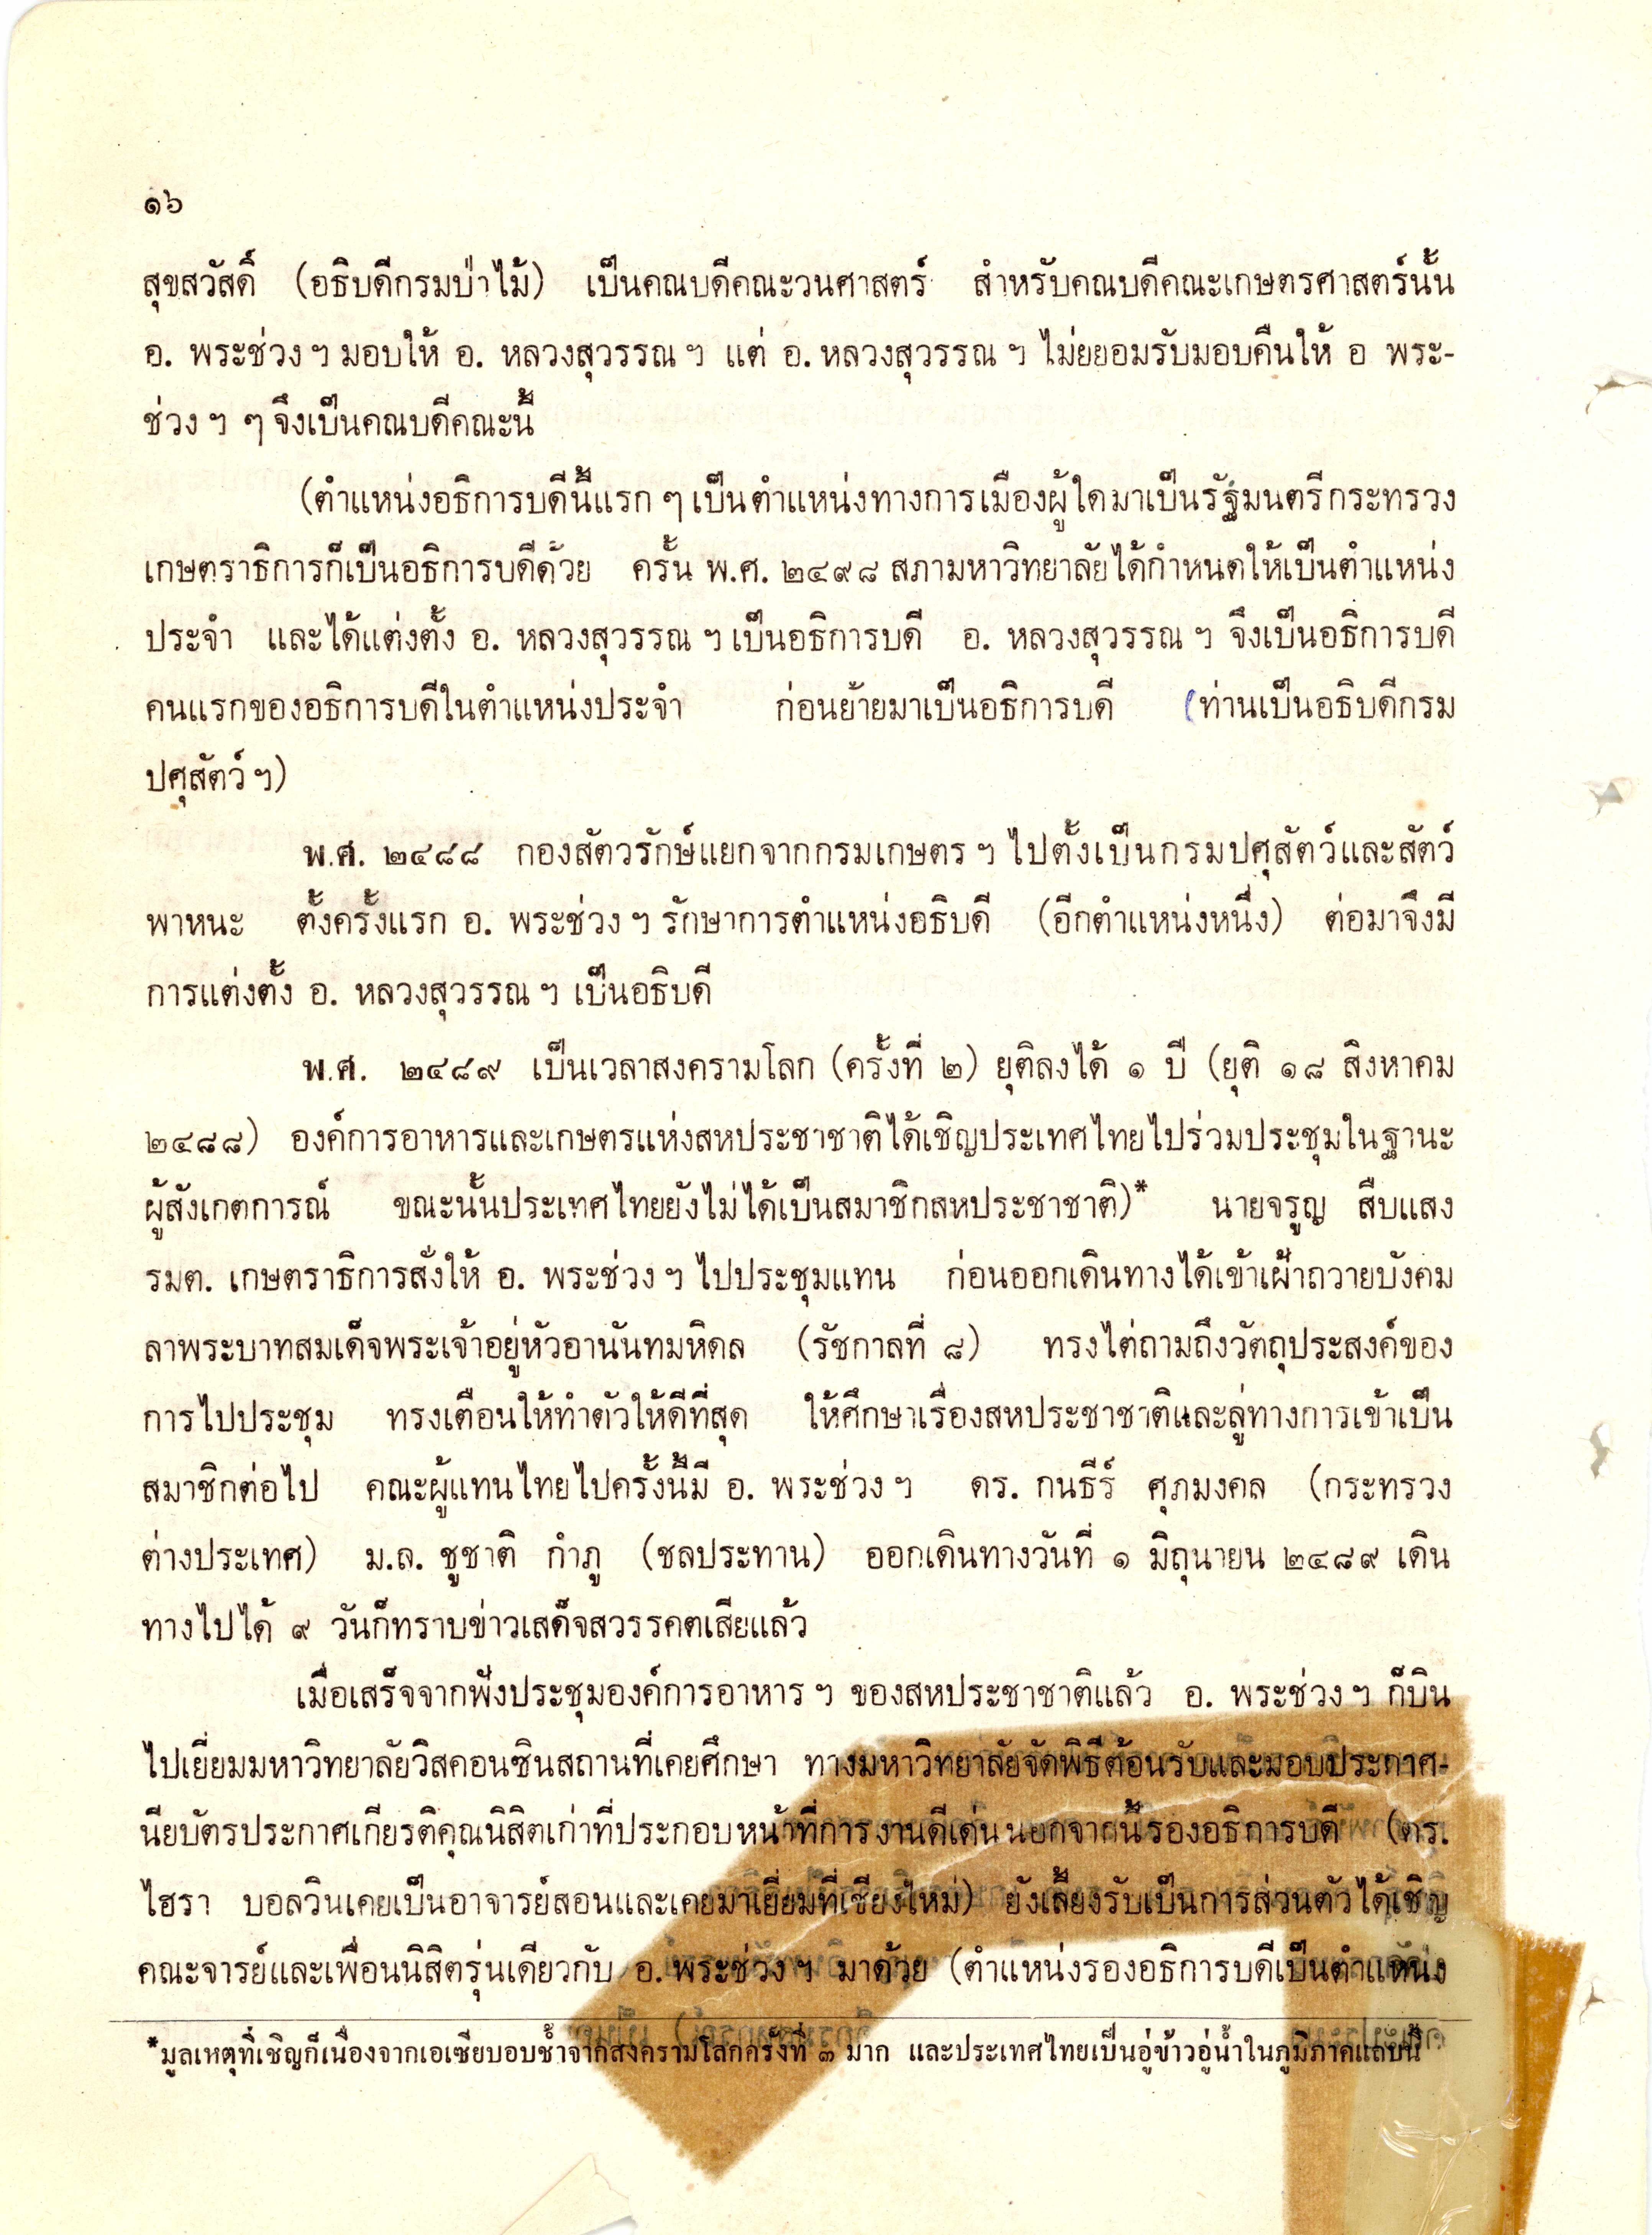 ๑๖
สุขสวัสดิ์ (อธิบดีกรมป่าไม้) เป็นคณบดีคณะวนศาสตร์ สำหรับคณบดีคณะเกษตรศาสตร์นั้น
อ. พระช่วง ฯ มอบให้ อ. หลวงสุวรรณ ฯ แต่ อ. หลวงสุวรรณ ฯ ไม่ยยอมรับมอบคืนให้ อ พระ-
ช่วง ฯ ๆ จึงเป็นคณบดีคณะนี้
(ตำแหน่งอธิการบดีนี้แรก ๆ เป็นตำแหน่งทางการเมืองผู้ใดมาเป็นรัฐมนตรีกระทรวง
เกษตราธิการก็เป็นอธิการบดีด้วย ครั้น พ.ศ. ๒๔๙๘ สภามหาวิทยาลัยได้กำหนดให้เป็นตำแหน่ง
ประจำ และได้แต่งตั้ง อ. หลวงสุวรรณ ฯ เป็นอธิการบดี อ. หลวงสุวรรณ ฯ จึงเป็นอธิการบดี
คนแรกของอธิการบดีในตำแหน่งประจำ ก่อนย้ายมาเป็นอธิการบดี (ท่านเป็นอธิบดีกรม
ปศุสัตว์ ฯ)
พ.ศ. ๒๔๘๘ กองสัตวรักษ์แยกจากกรมเกษตร ฯ ไปตั้งเป็นกรมปศุสัตว์และสัตว์
พาหนะ ตั้งครั้งแรก อ. พระช่วง ฯ รักษาการตำแหน่งอธิบดี (อีกตำแหน่งหนึ่ง) ต่อมาจึงมี
การแต่งตั้ง อ. หลวงสุวรรณ ฯ เป็นอธิบดี
พ.ศ. ๒๔๘๙ เป็นเวลาสงครามโลก (ครั้งที่ ๒) ยุติลงได้ ๑ ปี (ยุติ ๑๘ สิงหาคม
๒๔๘๘) องค์การอาหารและเกษตรแห่งสหประชาชาติได้เชิญประเทศไทยไปร่วมประชุมในฐานะ
ผู้สังเกตการณ์ ขณะนั้นประเทศไทยยังไม่ได้เป็นสมาชิกสหประชาชาติ)* นายจรูญ สืบแสง
รมต. เกษตราธิการสั่งให้ อ. พระช่วง ฯ ไปประชุมแทน ก่อนออกเดินทางได้เข้าเฝ้าถวายบังคม
ลาพระบาทสมเด็จพระเจ้าอยู่หัวอานันทมหิดล (รัชกาลที่ ๘) ทรงไต่ถามถึงวัตถุประสงค์ของ
การไปประชุม ทรงเตือนให้ทำตัวให้ดีที่สุด ให้ศึกษาเรื่องสหประชาชาติและลู่ทางการเข้าเป็น
สมาชิกต่อไป คณะผู้แทนไทยไปครั้งนี้มี อ. พระช่วง ฯ ดร. กนธีร์ ศุภมงคล (กระทรวง
ต่างประเทศ) ม.ล. ชูชาติ กำภู (ชลประทาน) ออกเดินทางวันที่ ๑ มิถุนายน ๒๔๘๙ เดิน
ทางไปได้ ๙ วันก็ทราบข่าวเสด็จสวรรคตเสียแล้ว
เมื่อเสร็จจากฟังประชุมองค์การอาหาร ฯ ของสหประชาชาติแล้ว อ. พระช่วง ฯ ก็บิน
ไปเยี่ยมมหาวิทยาลัยวิสคอนซินสถานที่เคยศึกษา ทางมหาวิทยาลัยจัดพิธีต้อนรับและมอบประกาศ-
นียบัตรประกาศเกียรติคุณนิสิตเก่าที่ประกอบหน้าที่การงานดีเด่น นอกจากนี้รองอธิการบดี (ดร.
ไฮรา บอลวินเคยเป็นอาจารย์สอนและเคยมาเยี่ยมที่เชียงใหม่) ยังเลี้ยงรับเป็นการส่วนตัวได้เชิญ
คณะจารย์และเพื่อนนิสิตรุ่นเดียวกับ อ. พระช่วง ฯ มาด้วย (ตำแหน่งรองอธิการบดีเป็นตำแหน่ง
*มูลเหตุที่เชิญก็เนื่องจากเอเซียบอบช้ำจากสงครามโลกครั้งที่ ๓ มาก และประเทศไทยเป็นอู่ข้าวอู่น้ำในภูมิภาคแถบนี้